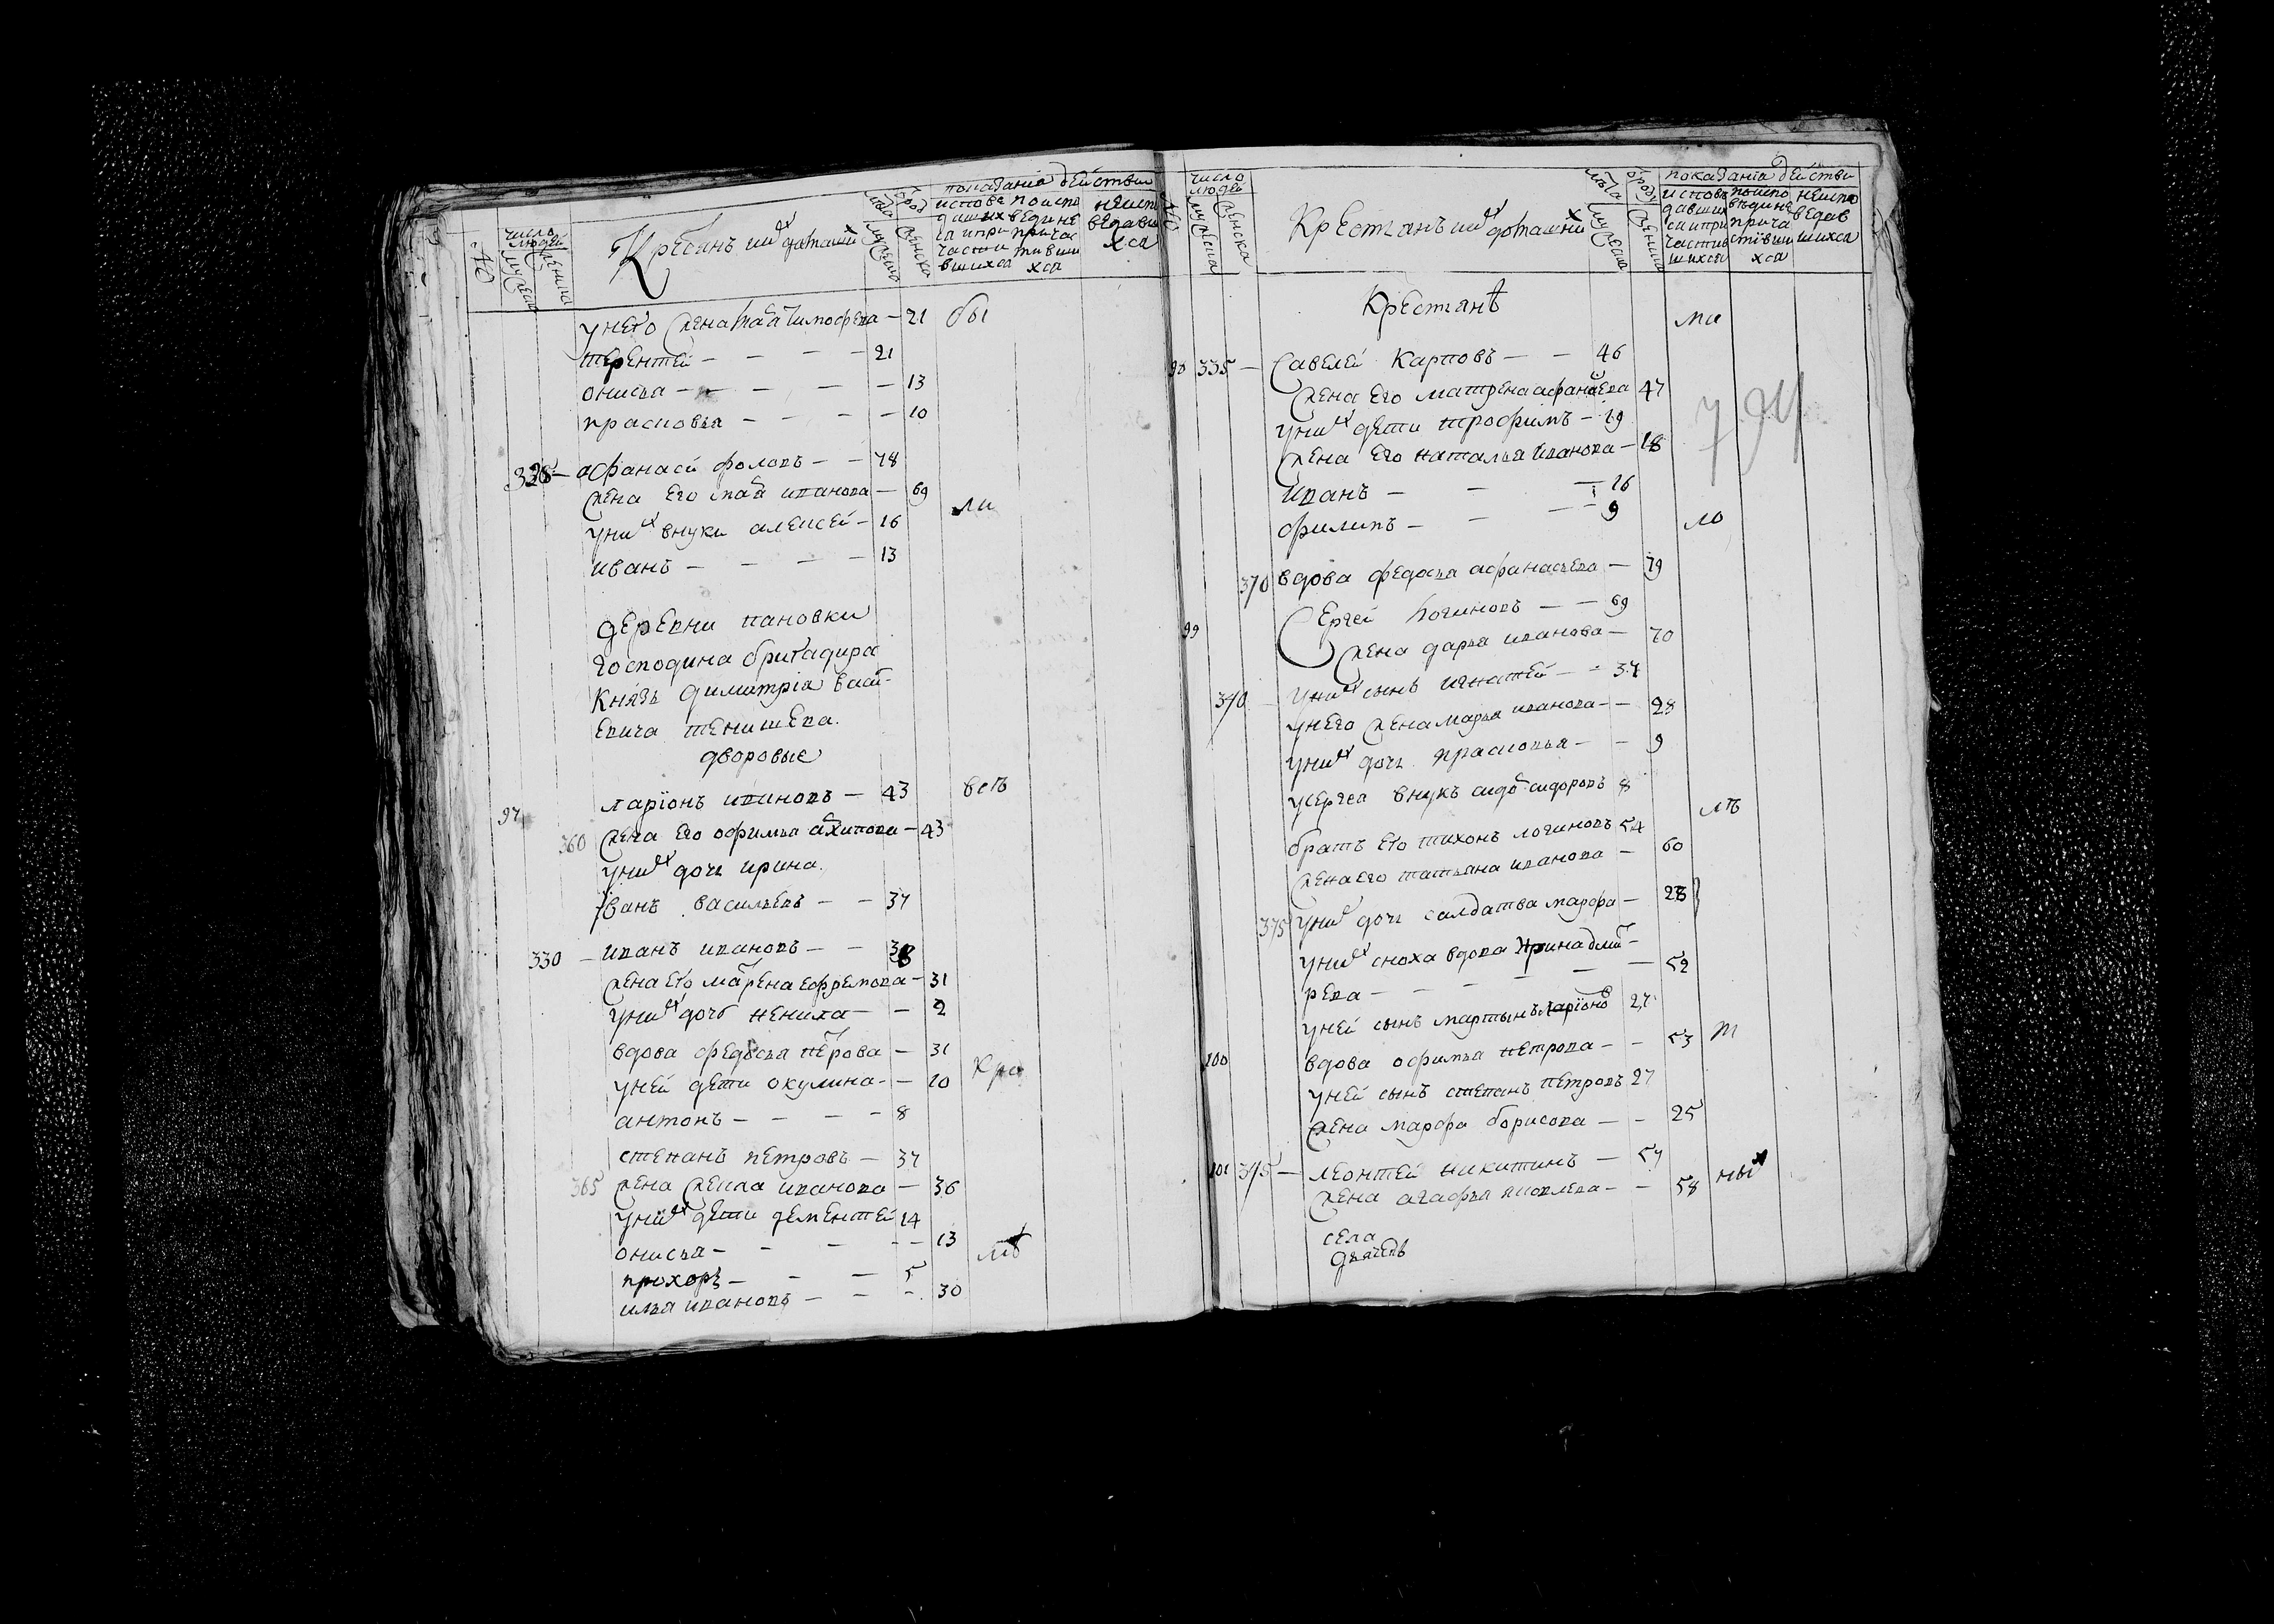 №
число людей
мужеска
женска
Крестьянъ и их домашнихъ
лѣта
мужеска
женска
показаніа действи
исповедавшихса и причастившихса
поисповединепричастившихса
неисповедавшихса
у него жена Тимофеева — 21 бы
терентей — — — — 21
онисья — — — — 13
прасковья — — — — 10
афанасй фролов — — 78
жена его иванова — 69
у них внуки алексей — 16 ли
иванъ — — — — 13
деревни пановки
господина бригадира
Князь димитріа васил-
евича тенишева.
дворовые
97 ларіонъ ивановъ — 43 всѣ
360 жена его офимья архипова — 43
у них дочь ирина.
Іванъ васильевъ — — 37
330 — иванъ ивановъ — — 38
жена его матрена ефремова — 31
у них дочь ненила — — 2
вдова федосья петрова — 31
у ней дети окулина — — 10 Кра
антонъ — — — — 8
степанъ петровъ — 37
365 жена иванова — 36
у них дети дементей 14
онисья — — — — 13
прохоръ — — — 5
илья ивановъ — — — 30
№
число людей
мужеска
женска
Крестьянъ и их домашни х
лѣта
мужеска
показаніа действи
исповедавшихса и причастившихса
поисповѣдинепричастівшихса
неисповедавшихса
Крестьянѣ
ми
98 335 — Савелей Карповъ — — 46
жена его матрена афанасева 47
у них дети трофимъ — 19
794
жена его наталья иванова — 18
иванъ — — — 16
филипъ — — — 9 ло
370 вдова федосья афанасьева — 79
99 Сергей логиновъ — — 69
жена дарья иванова — 70
340 у них сынъ игнатей — — 37
у него жена марья иванова — — 28
у них дочь прасковья — — 9
у сергея внукъ сидоръ сидоровъ 8
лѣ
братъ его тихонъ логиновъ 54
жена его татьяна иванова — 60
375 у них дочь салдатка марфа — 28
у них сноха вдова Ирина дмит-
рева — — — — 52
у ней сынъ мартынъ ларіоно 27
100 вдова офимья петрова — — 53 т
у ней сынъ степанъ петровъ 27
жена марфа борисова — — 25
101 345 — леонтей никитинъ — 57
жена агафья яковлева — — 58 ных
села
дьячевъ